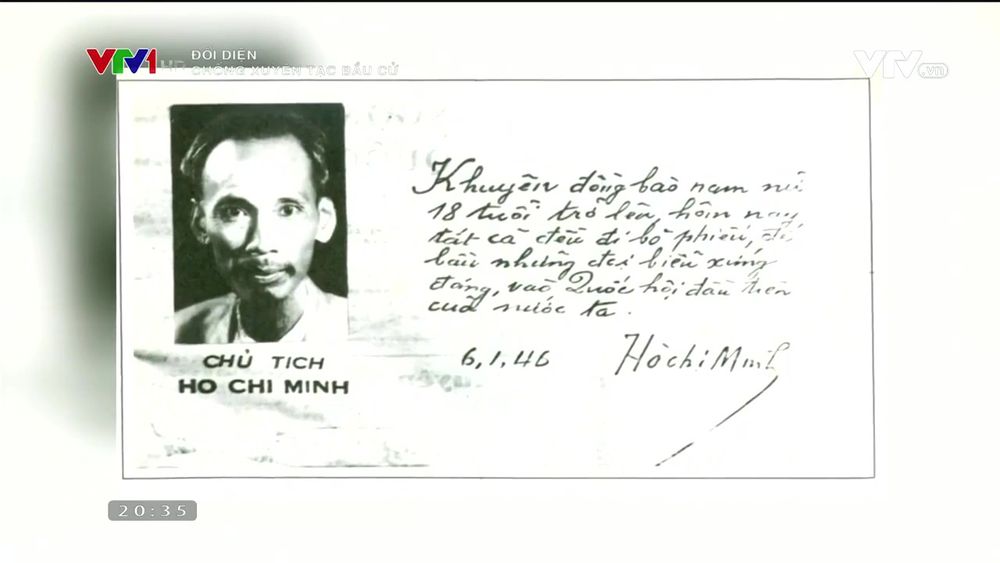 VTV1 HD ĐỐI DIỆN
CHỐNG XUYÊN TẠC BẦU CỬ
VTV.vn
Khuyên đồng bào nam nữ
18 tuổi trở lên, hôm nay
tất cả đều đi bỏ phiếu, để
bầu những đại biểu xứng
đáng, vào Quốc hội đầu tiên
của nước ta.
6.1.46 Hồ Chí Minh
CHỦ TỊCH
HO CHI MINH
20:35